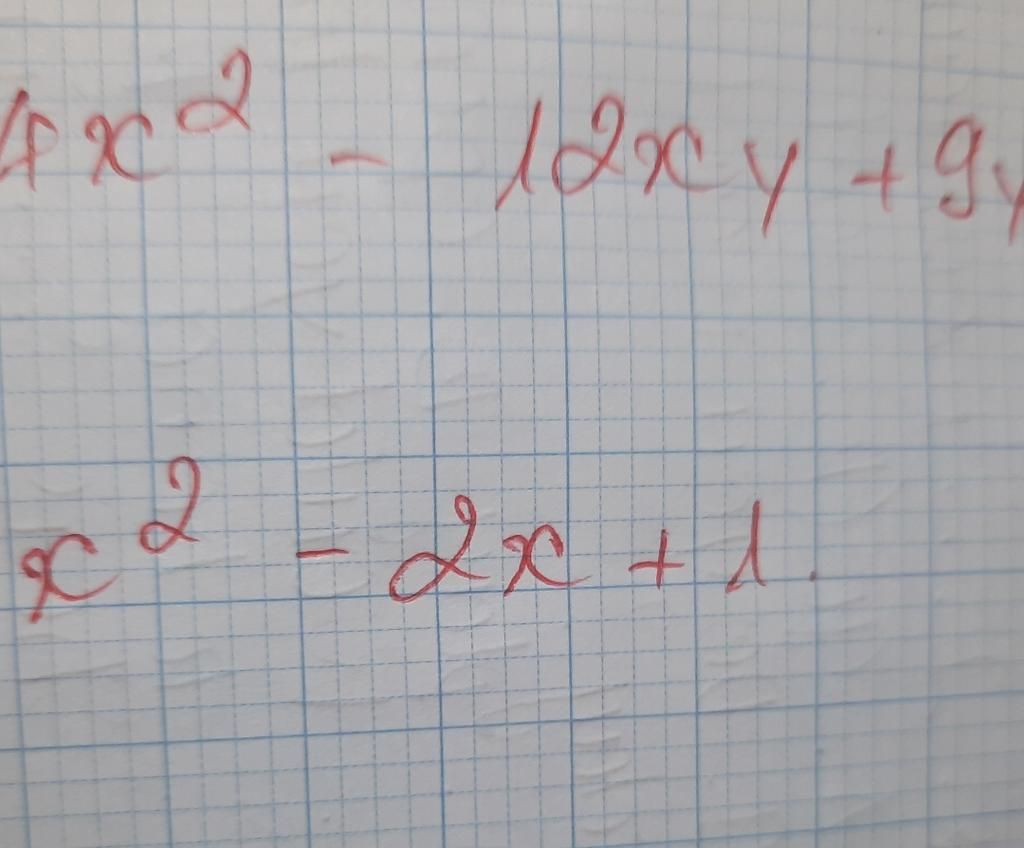 4x² - 12xy + 9y
x² - 2x + 1.